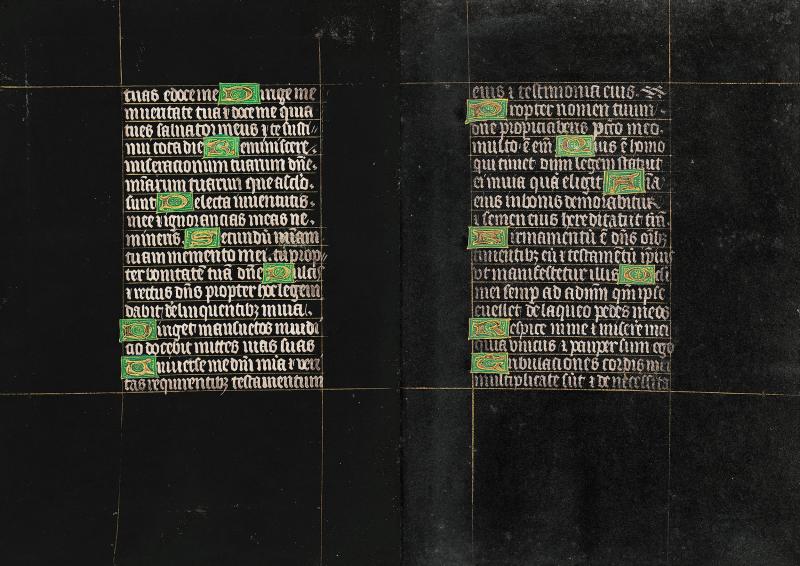 tuas edoce me Dirige me
in veritate tua ⁊ doce me quia
tu es saluator meus ⁊ te susti
nui tota die Reminiscere
miseracionum tuarum dñe
mĩarum tuarum que a sclo
sunt Delicta iuuentutis
mee ⁊ ignorancias meas ne
mineris Secundũ miam
tuam memento mei tu prop
ter bonitatẽ tuã dñe Dulcis
⁊ rectus dñs propter hoc legem
dabit delinquentibȝ in uia
Diriget mansuetos in iudi
cio docebit mittes uias suas
Uniuerse me dñi mia ⁊ veri
tas requirentibȝ testamentum
eius ⁊ testimonia eius
Propter nomen tuum
dñe propiciaberis pcc̃o meo
multo ẽ em̃ Quis ẽ homo
qui timet dnm legem statuit
ei in uia quã eligit Aĩa
eius in bonis demorabitur
⁊ semen eius hereditabit trã
Firmamentũ ẽ dñs oĩbȝ
timentibȝ eũ ⁊ testamẽtũ ipĩus
vt manifestetur illis Oculi
mei semp ad adnm̃ qm̃ ipse
euellet de laqueo pedes meos
Respice in me ⁊ misere mei
quia vnicus ⁊ pauper sum ego
Tribulaciones cordis mei
multiplicate sũt ⁊ de necessita